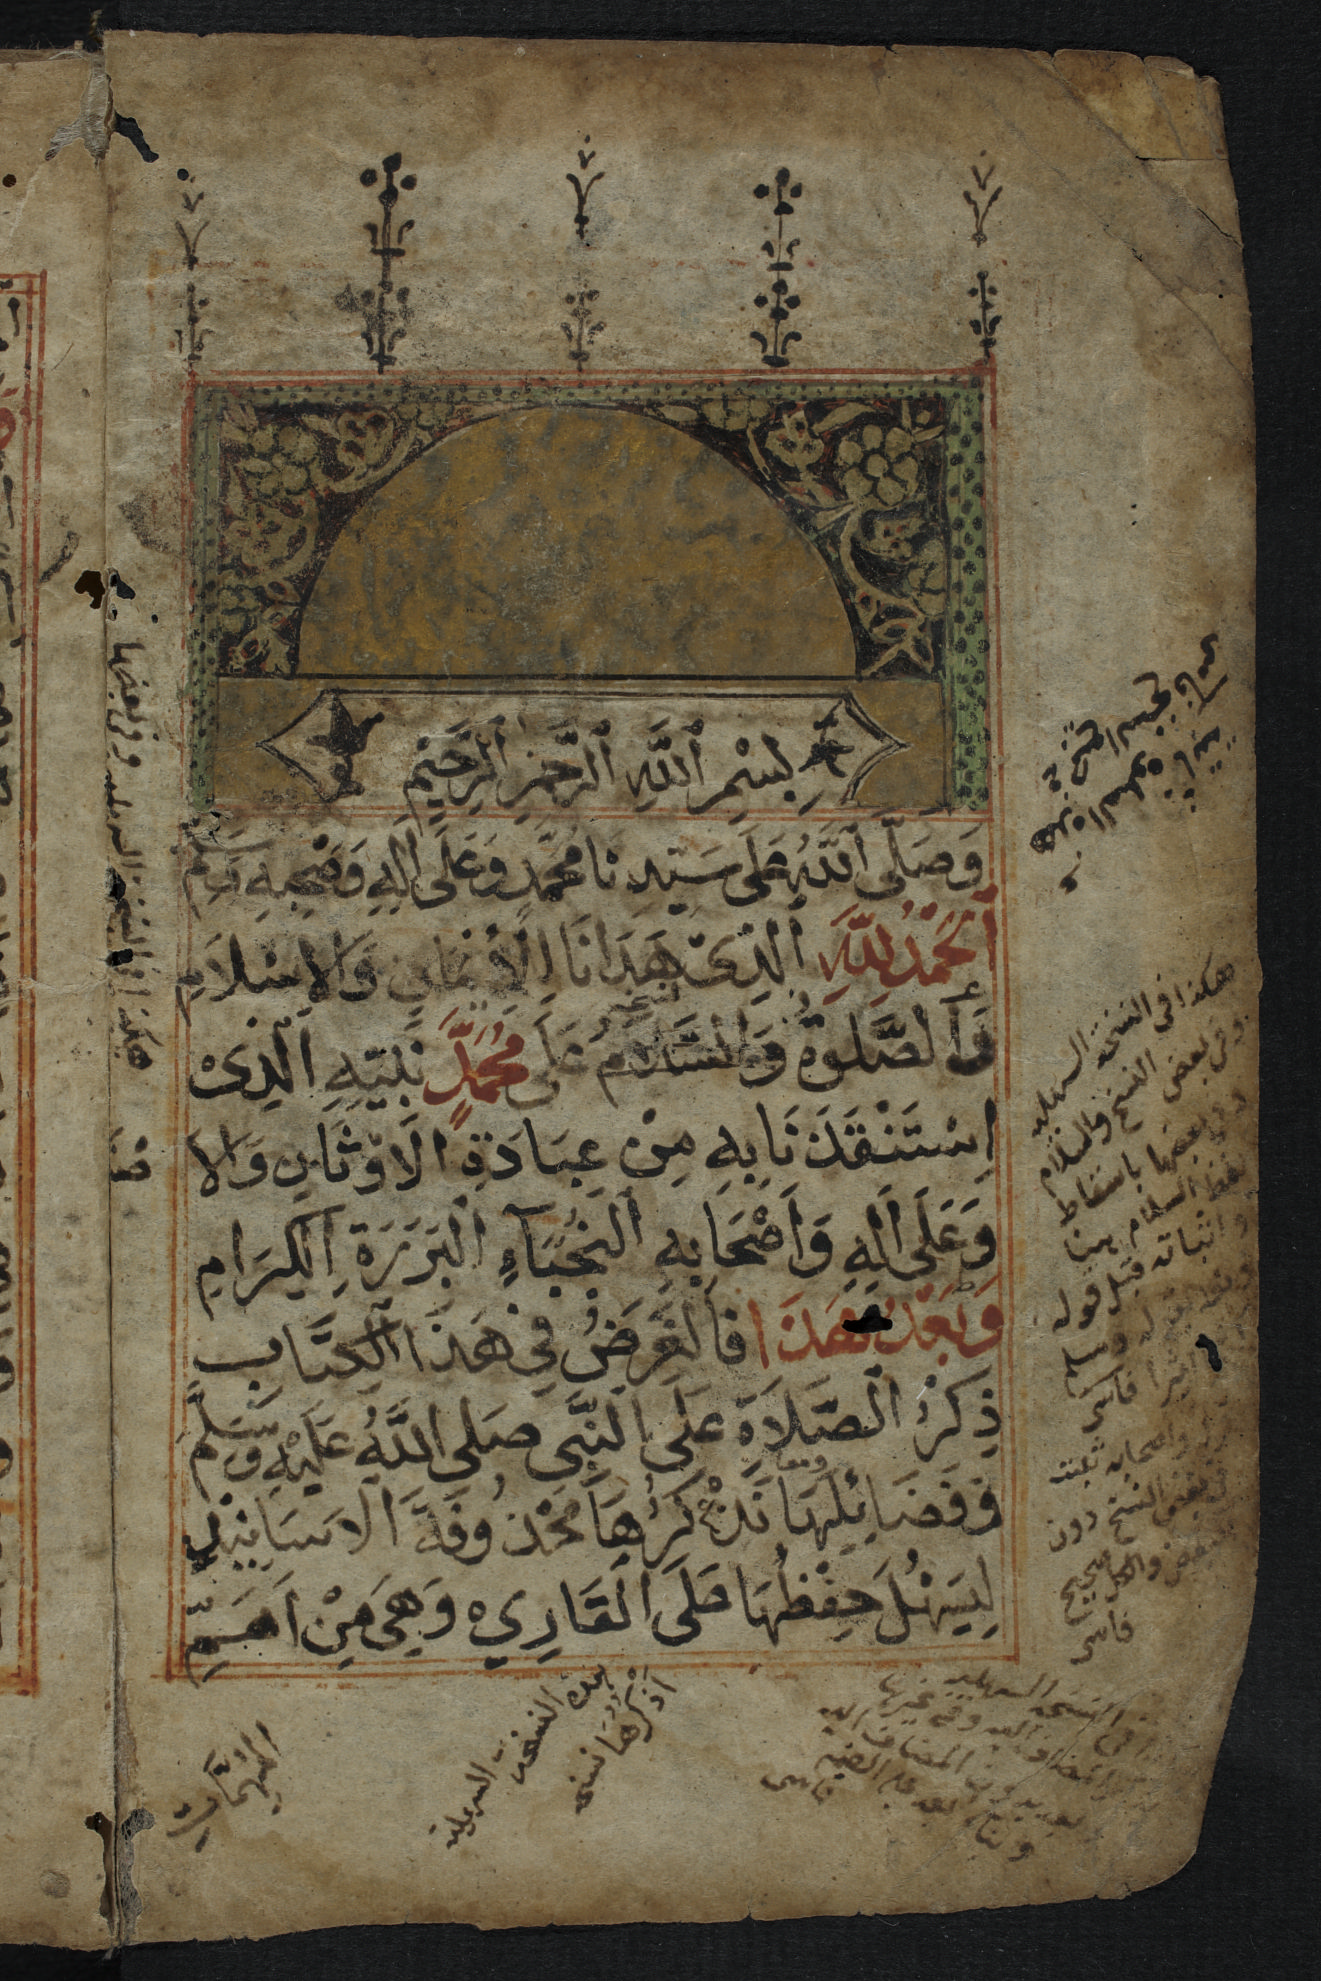 بِسْمِ ٱللَّهِ ٱلرَّحْمَٰنِ ٱلرَّحِيمِ
وَصَلَّى ٱللَّهُ عَلَى سَيِّدِنَا مُحَمَّدٍ وَعَلَى اٰلِهِ وَصَحْبِهِ وَسَلَّمَ
اَلْحَمْدُ لِلّٰهِ ٱلَّذِىْ هَدَانَا لِلْاِيْمَانِ وَالْاِسْلَامِ
وَالصَّلٰوةُ وَالسَّلَامُ عَلَى مُحَمَّدٍ نَبِيِّهِ الَّذِىْ
اِسْتَنْقَذَنَا بِهِ مِنْ عِبَادَةِ الْاَوْثَانِ وَالْاَ
وَعَلَى اٰلِهِ وَاَصْحَابِهِ النُّجَبَآءِ الْبَرَرَةِ الْكِرَامِ
وَبَعْدَ هٰذَا فَالْغَرَضُ فِي هَذَا الْكِتَابِ
ذِكْرُ الصَّلَاةِ عَلَى النَّبِيِّ صَلَّى اللَّهُ عَلَيْهِ وَسَلَّمَ
وَفَضَائِلِهَا نَذْكُرُهَا مَحْذُوفَةَ الْاَسَانِيْدِ
لِيَسْهُلَ حِفْظُهَا عَلَى الْقَارِىءِ وَهِيَ مِنْ اَهَمِّ
الْمُهِمَّاتِ
هكذا في النسخة السهلية
وفي بعض النسخ والسلام
وفي بعضها باسقاط
لفظ السلام هنا
واثباته قبل قوله
فاسى
واصحابه ثبت
في بعض النسخ دون
بعض والكل صحيح
فاسى
هكذا في النسخة السهلية وفي بعضها
صنا
اذكرها نسخه
النسخة السهلية